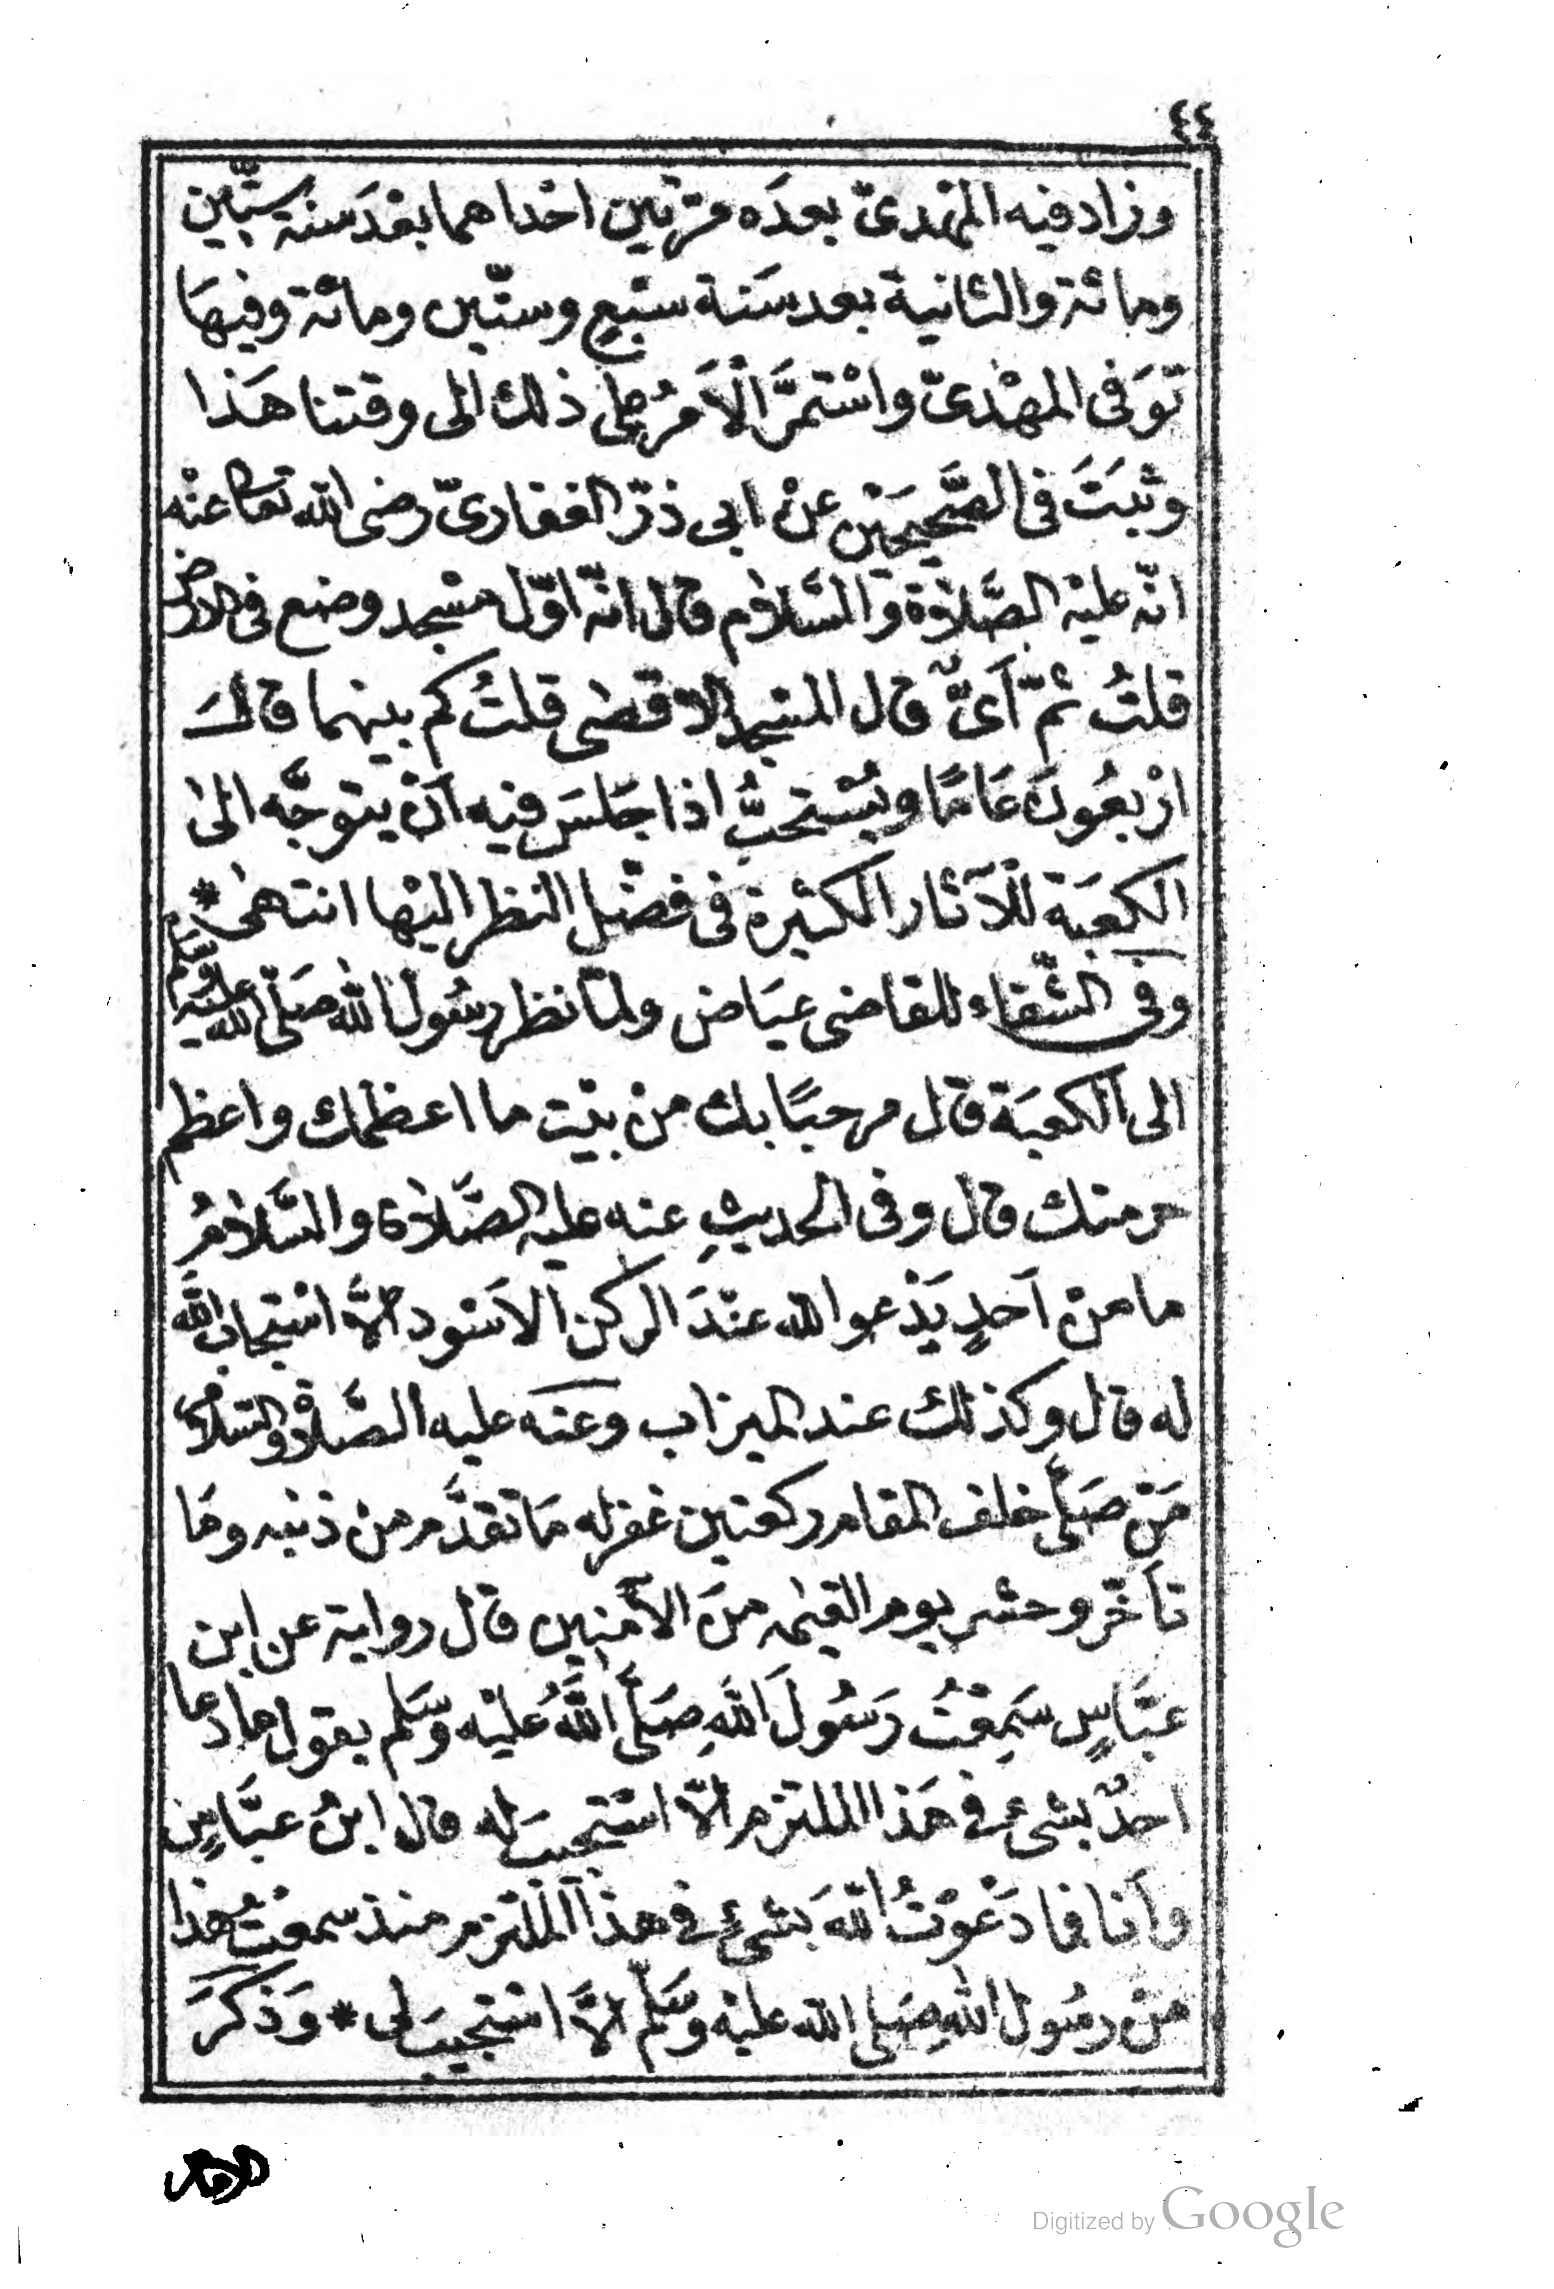 ٤٤
وزاد فيه المهدىّ بعدَه مرّتين احْداهما بعْدَ سَنة ستّين
ومائة والثانية بعد سَنة سبْعٍ وستّين ومائة وفيهَا
توَفى المهْدىّ واسْتمرَّ الْاَمرُ على ذلك الى وقتنا هَذا
وثبَتَ فى الصَّحيحَيْن عنْ ابى ذرّ الغفارىّ رضى الله تعا عنْه
انّه عليْه الصَّلاوة والسَّلام قال انّه اوّل مسْجد وضع فى الارض
قلتُ ثمّ اَىٌّ قال المسْجد الاقصٰى قلتُ كم بينهما قالَ
ارْبعُونَ عَامًا ويُسْتحبُّ اذا جَلسَ فيه اَنْ يتوجَّه الىٰ
الكعْبَة لْلآثار الكثيرة فى فضْل النظر اليْها انتهىٰ *
وفى الشّفاء للقاضى عيَاض ولمّا نظر رسُول الله صَلّى الله عليْه وسَلّم
الى الكعبَة قال مرحبًا بك منْ بيْت ما اعظمك واعظم
حرمتك قال وفى الحديثِ عنه عليه الصَّلاة والسَّلامُ
ما منْ اَحدٍ يَدْعو الله عنْدَ الركن الاَسْود الاَّ اسْتجاب الله
له قال وكذلك عند الميزاب وعنه عليه الصَّلاة والسّلام
مَنْ صَلّى خلف المقام ركعتين غفر له مَا تقدَّم من ذنبه ومَا
تأخّر وحشر يوم القيٰمه منَ الآمنين قال رواية عن ابن
عبَّاسٍ سَمِعْتُ رَسُولَ اللهِ صَلَّى اللهُ عليْه وسَلم يقول ما دعا
احدٌ بشئ فى هَذا الملتزم الاّ اسْتجيبَ له قال ابنُ عبَّاسٍ
وأنا فما دَعْوتُ اللهَ بشئ فى هذا الملْتزم منذ سمعْتُ هذا
منْ رسُول الله صَلى الله عليْه وسَلّم الاَّ اسْتجيبَ لى * وَذكرَ
Digitized by Google